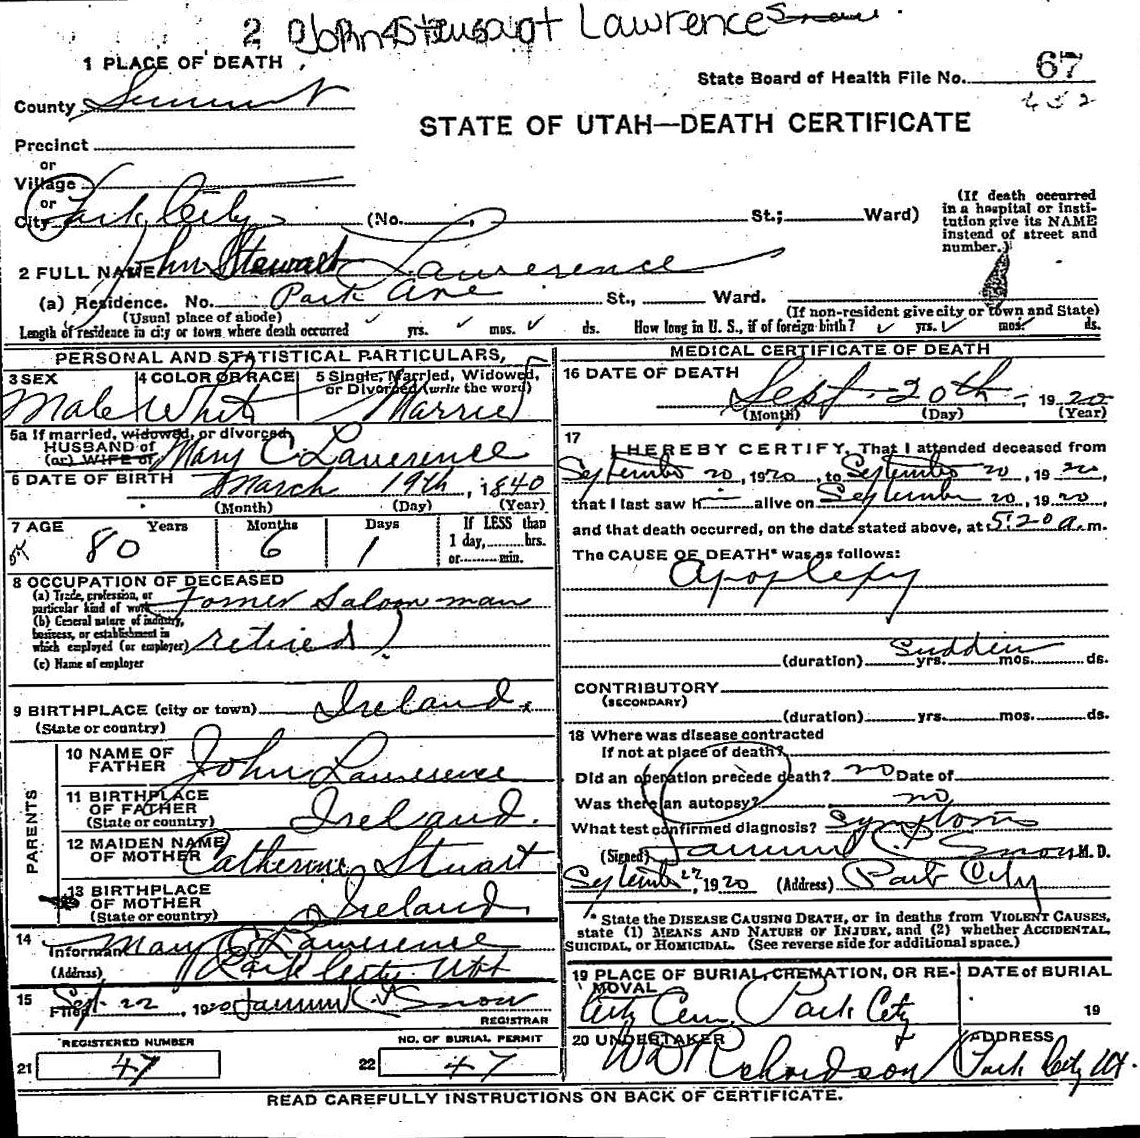 2 John Stewart Lawrence Snow
1 PLACE OF DEATH
State Board of Health File No. 67
452
County Summit
STATE OF UTAH—DEATH CERTIFICATE
Precinct
or
Village
or
City Park City (No. St.; Ward)
(If death occurred in a hospital or insti-
tution give its NAME
instend of street and
number.)
2 FULL NAME John Stewart Lawerence
(a) Residence. No. Park Ave St., Ward.
(Usual place of abode) (If non-resident give city or town and State)
Length of residence in city or town where death occurred yrs. mos. ds. How long in U. S., if of foreign birth? yrs. mos. ds.
PERSONAL AND STATISTICAL PARTICULARS,
3 SEX Male
4 COLOR OR RACE White
5 Single, Married, Widowed,
or Divorced (write the word)
Married
5a If married, widowed, or divorced
HUSBAND of
(or) WIFE of Mary C Lawerence
6 DATE OF BIRTH March 19th, 1840
(Month) (Day) (Year)
7 AGE Years Months Days If LESS than
80 6 1 1 day, hrs.
or min.
8 OCCUPATION OF DECEASED
(a) Trade, profession, or
particular kind of work Former Saloon man
(b) General nature of industry,
business, or establishment in
which employed (or employer) retired
(c) Name of employer
9 BIRTHPLACE (city or town) Ireland.
(State or country)
PARENTS
10 NAME OF
FATHER John Lawerence
11 BIRTHPLACE
OF FATHER
(State or country) Ireland.
12 MAIDEN NAME
OF MOTHER Catherine Stuart
13 BIRTHPLACE
OF MOTHER
(State or country) Ireland.
14
Informant Mary C Lawerence
(Address) Park City Utt
15
Filed Sept 22, 1920 Snow
REGISTRAR
REGISTERED NUMBER
21 47
NO. OF BURIAL PERMIT
22 47
MEDICAL CERTIFICATE OF DEATH
16 DATE OF DEATH
Sept. 20th, 1920
(Month) (Day) (Year)
17
I HEREBY CERTIFY, That I attended deceased from
September 20, 1920, to September 20, 1920,
that I last saw h alive on September 20, 1920,
and that death occurred, on the date stated above, at 5:20 a.m.
The CAUSE OF DEATH* was as follows:
Apoplexy
Sudden
(duration) yrs. mos. ds.
CONTRIBUTORY
(SECONDARY)
(duration) yrs. mos. ds.
18 Where was disease contracted
If not at place of death?
Did an operation precede death? no Date of
Was there an autopsy? no
What test confirmed diagnosis? Symptoms
(Signed) Snow M. D.
September 22, 1920 (Address) Park City
* State the DISEASE CAUSING DEATH, or in deaths from VIOLENT CAUSES,
state (1) MEANS AND NATURE OF INJURY, and (2) whether ACCIDENTAL,
SUICIDAL, or HOMICIDAL. (See reverse side for additional space.)
19 PLACE OF BURIAL, CREMATION, OR RE-
MOVAL
City Cem. Park City
DATE of BURIAL
19
20 UNDERTAKER
Richardson
ADDRESS
Park City Ut.
READ CAREFULLY INSTRUCTIONS ON BACK OF CERTIFICATE.